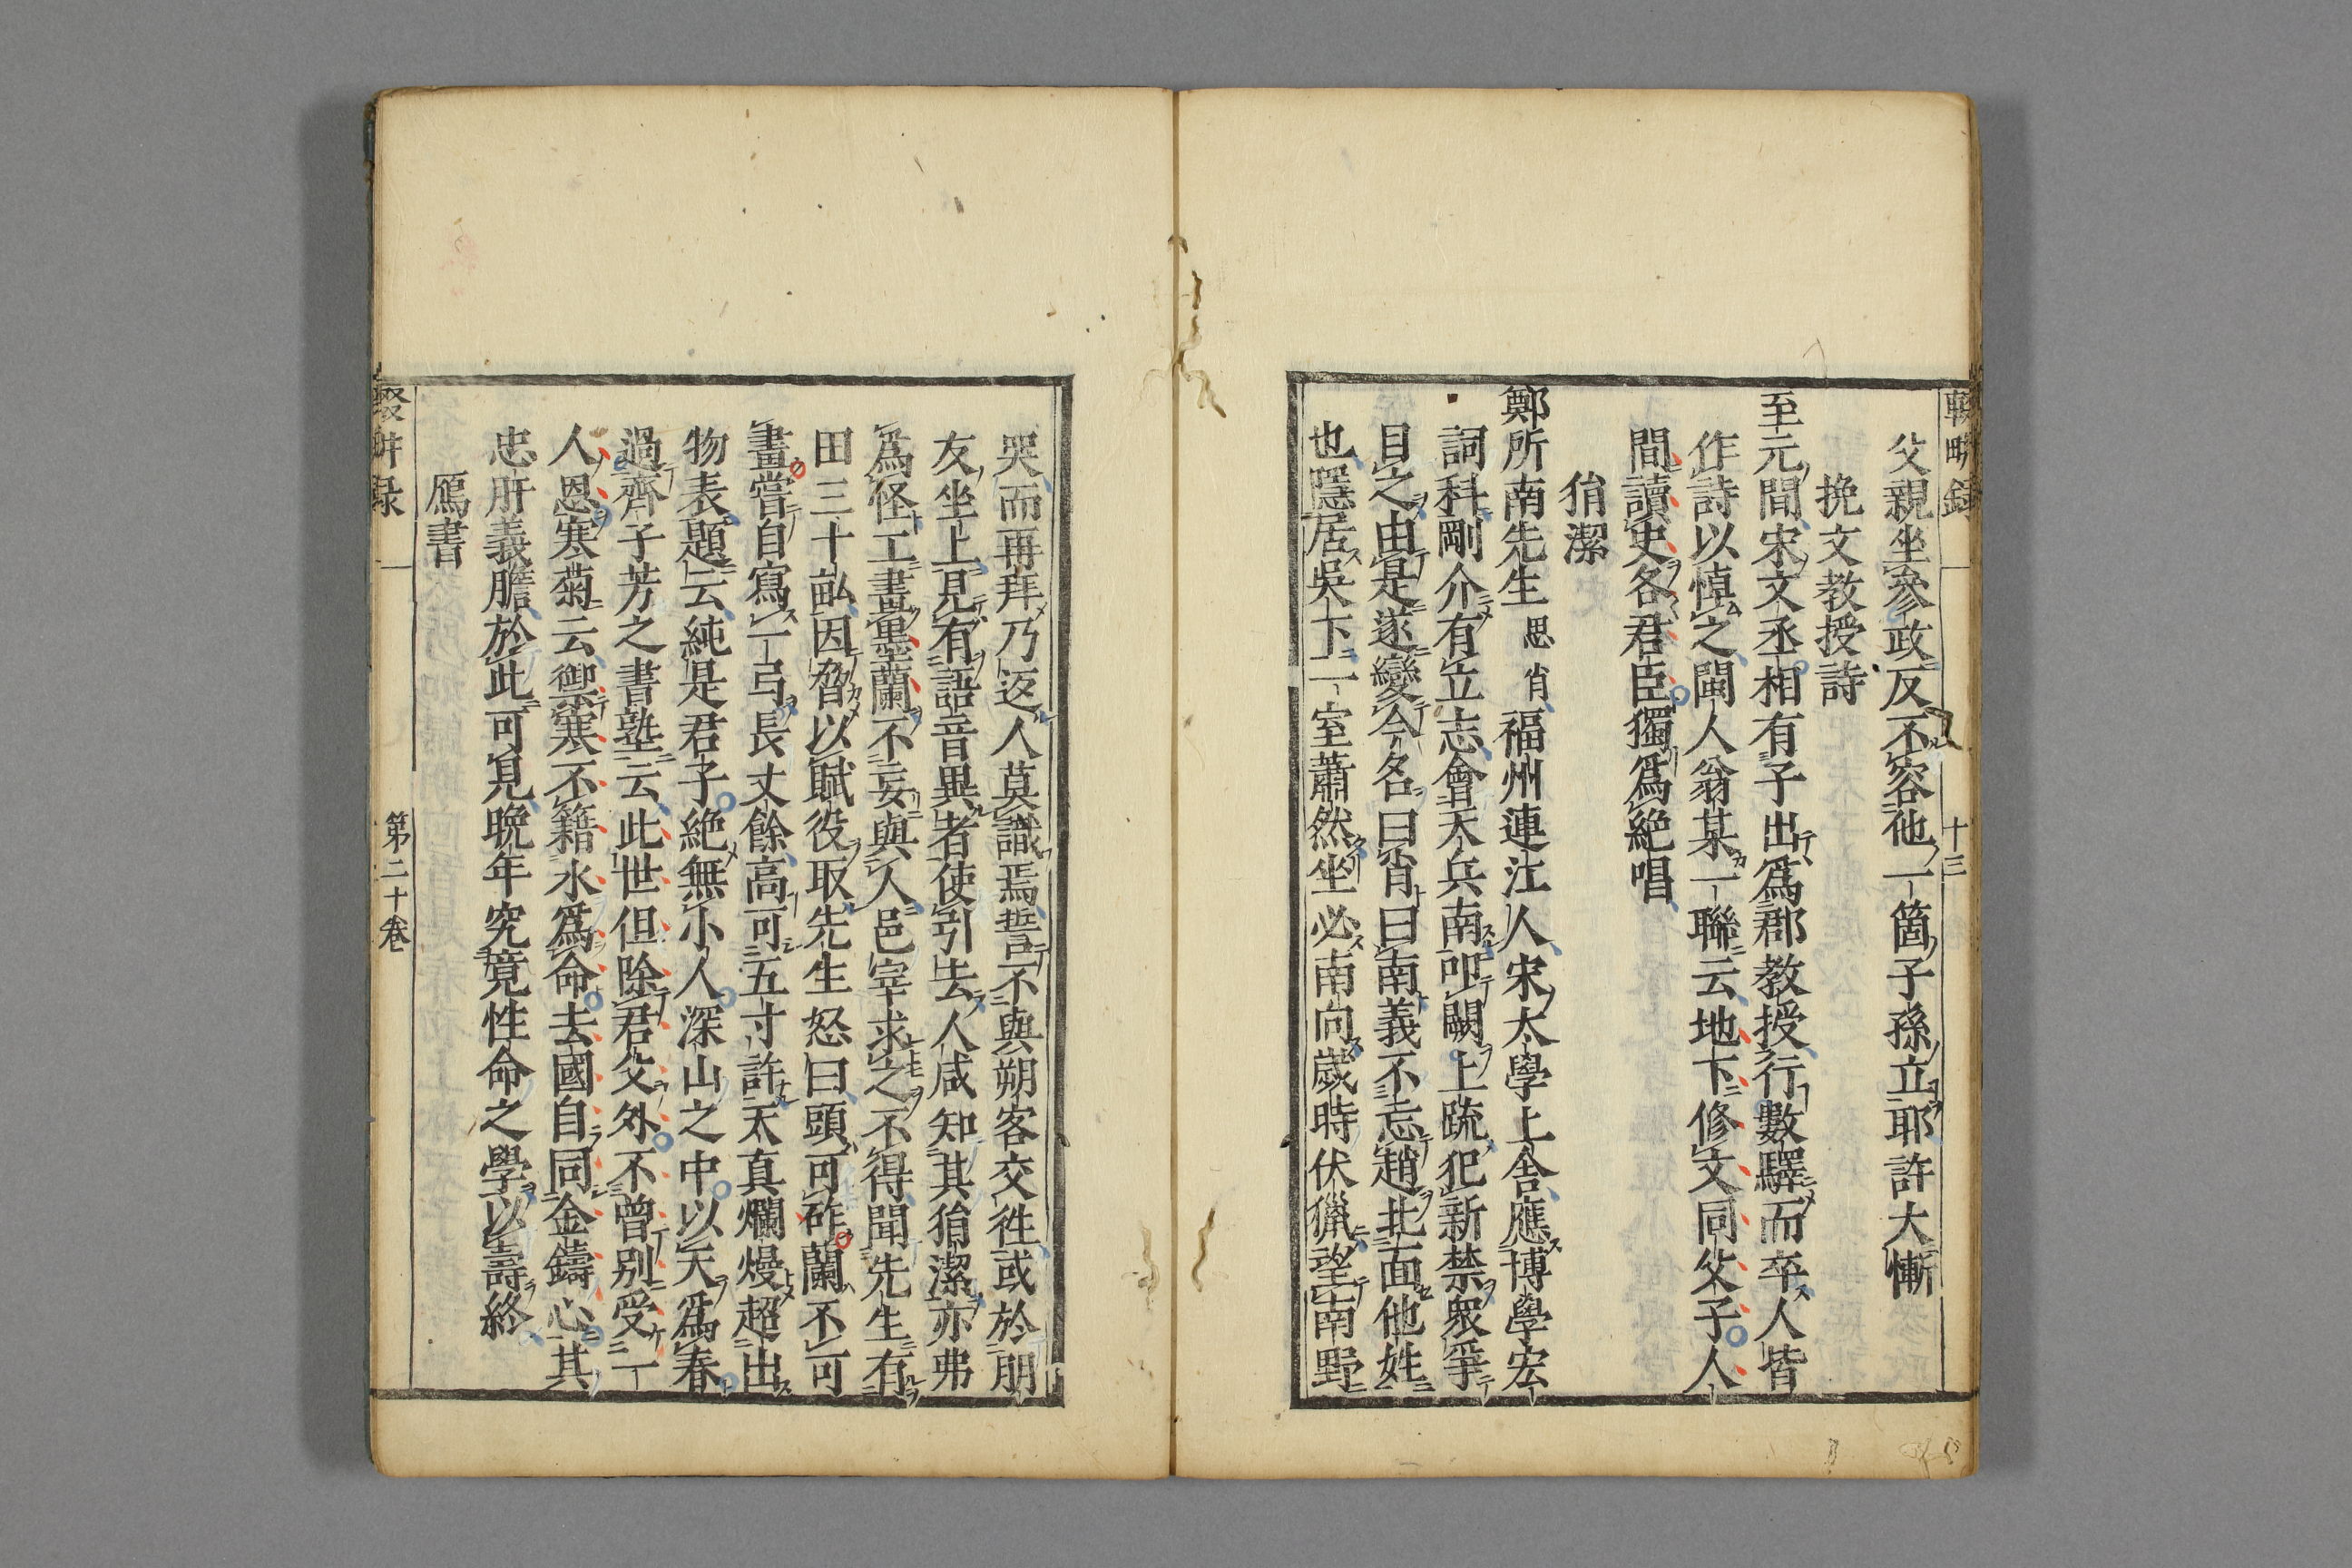 輟畊録 十三
父親坐參政反不容他一箇子孫立耶許大慚
挽文教授詩
至元間宋文丞相有子出爲郡教授行數驛而卒人皆
作詩以悼之閩人翁某一聯云地下修文同父子人
間讀史各君臣獨爲絶唱
狷潔
鄭所南先生思肖福州連江人宋太學上舍應博學宏
詞科剛介有立志會天兵南叩闕上疏犯新禁衆爭
目之由是遂變今名曰肖曰南義不忘趙北面他姓
也隱居吳下一室蕭然坐必南向歲時伏獵望南野
哭而再拜乃返人莫識焉誓不與朔客交徃或於朋
友坐上見有語音異者使引去人咸知其狷潔亦弗
爲怪工畫墨蘭不妄與人邑宰求之不得聞先生有
田三十畝因脅以賦役取先生怒曰頭可斫蘭不可
畫嘗自寫一弓長丈餘高可五寸許太真爛熳超出
物表題云純是君子絶無小人深山之中以天爲春
過齊子芳之書塾云此世但除君父外不曾別受一
人恩寒菊云禦寒不籍水爲命去國自同金鑄心其
忠肝義膽於此可見晩年究竟性命之學以壽終
鴈書
輟畊录 第二十卷